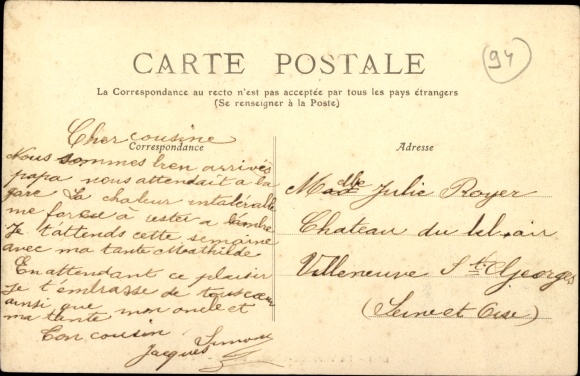 94
CARTE POSTALE
La Correspondance au recto n'est pas acceptée par tous les pays étrangers
(Se renseigner à la Poste)
Correspondance
Cher cousine
Nous sommes bien arrivés
papa nous attendait a la
gare La chaleur intolérable
me force à rester a l'ombre
Je t'attends cette semaine
avec ma tante Mathilde
En attendant ce plaisir
Je t'embrasse de tous coeur
ainsi que mon oncle et
ma tante
Ton cousin
Jacques Simon
Adresse
Mdlle Julie Royer
Chateau du bel air
Villeneuve St Georges
(Seine et Oise)